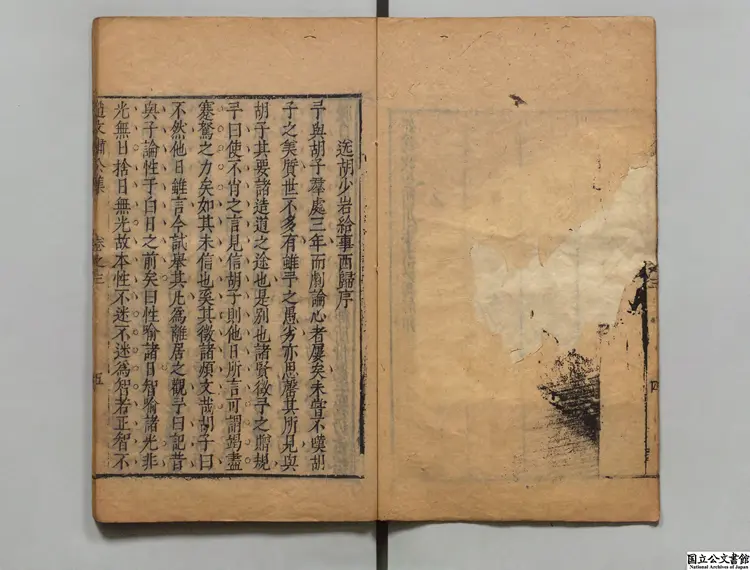 送胡少岩給事西歸序
予與胡子羣處三年而劇論心者屢矣未嘗不嘆胡
子之美質世不多有雖予之愚劣亦思罄其所見與
胡子其要諸造道之途也是别也諸賢徵予之贈規
予曰使不肖之言見信胡子則他日所言可謂竭盡
蹇駑之力矣如其未信也奚其徵諸頌文哉胡子曰
不然他日雖言今試舉其凡爲離居之觀予曰記昔
與子論性于白日之前矣曰性喻諸日智喻諸光非
光無日捨日無光故本性不迷不迷爲智者正智不
趙文肅公集 卷之三 五
三 四
国立公文書館
National Archives of Japan